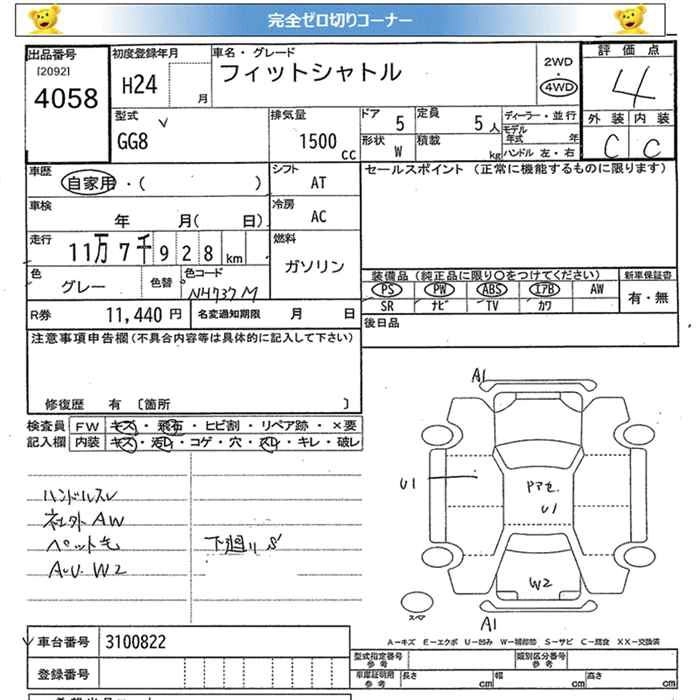 完全ゼロ切りコーナー
出品番号 初度登録年月 車名・グレード 2WD・4WD 評価点
[2092]
4058 H24 月 フィットシャトル 4
型式 排気量 ドア 定員 ディーラー・並行 外装 内装
GG8 1500cc 5 5人 モデル年式 年 C C
形状 W 積載 kg ハンドル 左・右
車歴 自家用・( ) シフト AT セールスポイント (正常に機能するものに限ります)
車検 年 月( 日) 冷房 AC
走行 11万7千928km 燃料 ガソリン
色 グレー 色替 色コード NH737M
装備品(純正品に限り○をつけてください) 新車保証書
PS PW ABS エアB AW 有・無
SR ナビ TV カワ
R券 11,440円 名変通知期限 月 日 後日品
注意事項申告欄(不具合内容等は具体的に記入して下さい)
修復歴 有 〔箇所 〕
検査員 FW キズ・飛石・ヒビ割・リペア跡・×要
記入欄 内装 キズ・汚レ・コゲ・穴・スレ・キレ・破レ
ハンドルスレ
社外AW
ペット毛 下廻りS
AU.W2
A1
U1
ドアセ.
U1
W2
スペア
A1
A-キズ E-エクボ U-凹み W-補修跡 S-サビ C-腐食 XX-交換済
車台番号 3100822
型式指定番号 参考 類別区分番号 参考
登録番号
車庫証明用 参考 長さ cm 幅 cm 高さ cm